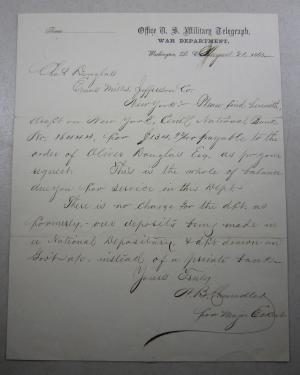 Office U. S. Military Telegraph,
WAR DEPARTMENT,
Washington, D. C. August 21, 186
Chas Douglass
Evans Mills, Jefferson Co.
New York. Please find herewith
draft on New York, Centl. National Bank
No. 18444, for $134. payable to the
order of Oliver Douglas Esq. as per your
request. This is the whole of balance
due you for service in this Dept.
There is no charge for the dft. as
formerly - our deposits being made in
a National Depository & dft drawn on
Govt a/c. instead of a private bank
Yours Truly
A. B. Chandler
for Major Eckert